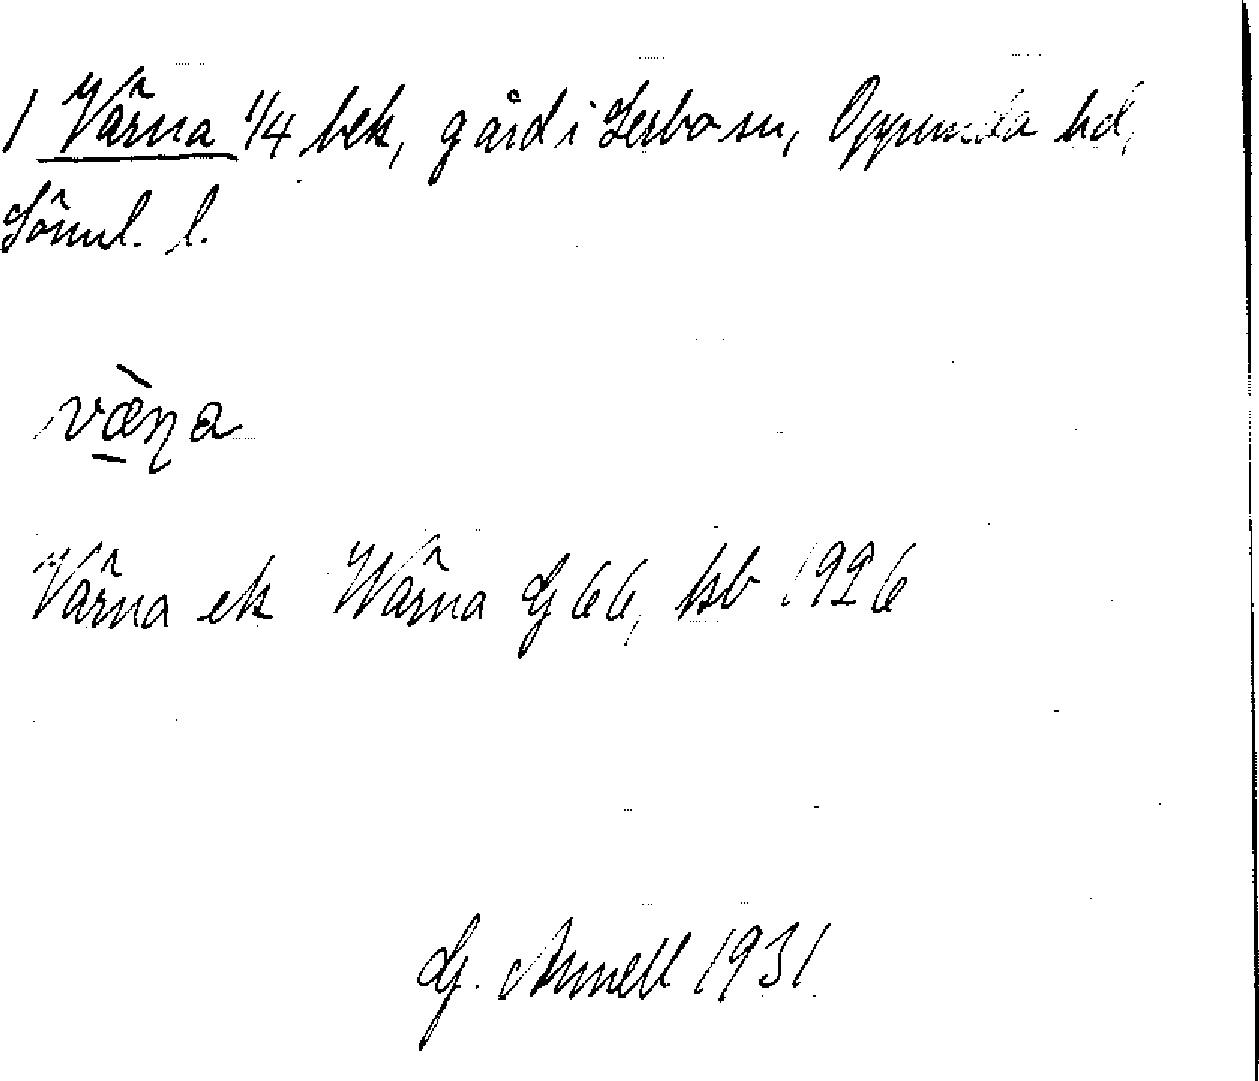 1 Värna 1/4 bek, gård i Lerbo sn, Oppunda hd,
Söml. l.
væ̀ɳa
Värna ek Wärna G 66, kb 1926
G. Arnell 1931